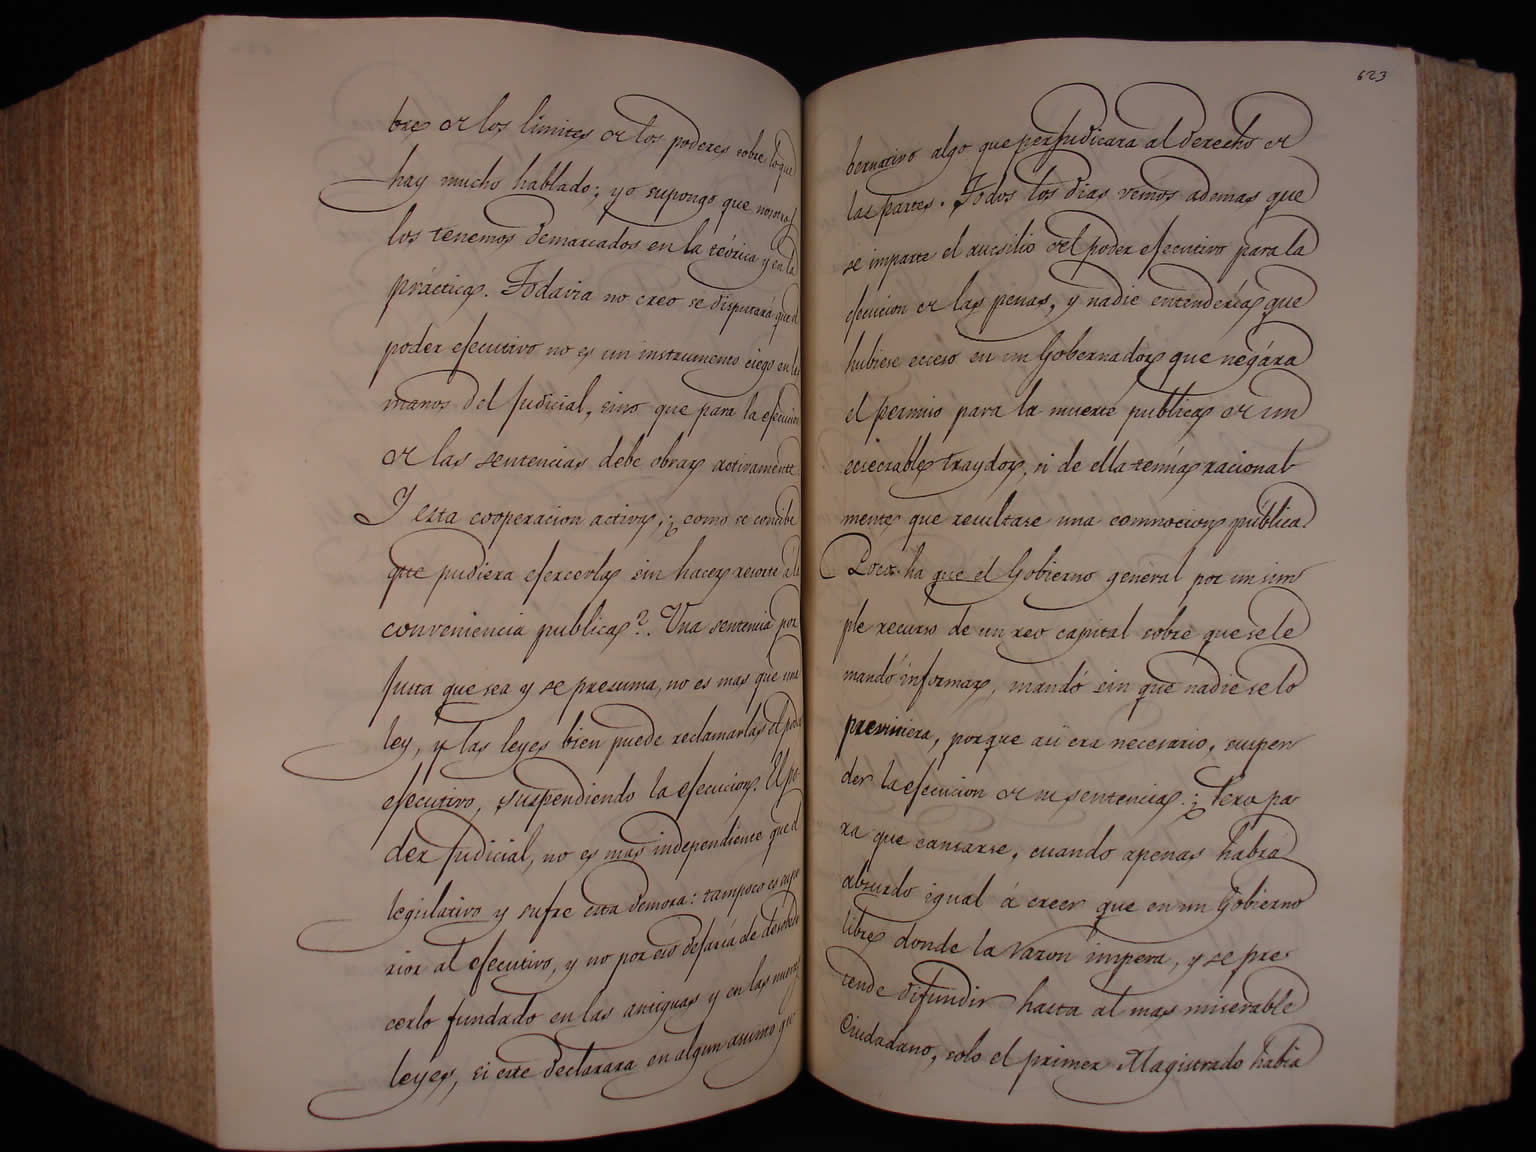 bre de los limites de los poderes sobre lo que
hay mucho hablado; yo supongo que nosotros
los tenemos demarcados en la teórica y en la
práctica. Todavia no creo se disputará que el
poder ejecutivo no es un instrumento ciego en las
manos del judicial, sino que para la ejecucion
de las sentencias debe obrar activamente
Y esta cooperacion activa, ¿como se concibe
que pudiera ejercerla sin hacer resorte á la
conveniencia publica?. Una sentencia por
justa que sea y se presuma, no es mas que una
ley, y las leyes bien puede reclamarlas el poder
ejecutivo, suspendiendo la ejecucion. El po-
der judicial, no es mas independiente que el
legislativo y sufre esta demora: tampoco es supe
rior al ejecutivo, y no por eso dejaría de desobede
cerlo fundado en las antiguas y en las nuevas
leyes, si este declarara en algun asunto gu
623
bernativo algo que perjudicara al derecho de
las partes. Todos los dias vemos ademas que
se imparte el aucsilio del poder ejecutivo para la
ejecucion de las penas, y nadie entendería que
hubiese ecseso en un Gobernador que negára
el permiso para la muerte publica de un
ecsecrable traydor, si de ella temía racional
mente que resultase una comnocion pública.
Poco ha que el Gobierno general por un sim
ple recurso de un reo capital sobre que se le
mandó informar, mandó sin que nadie se lo
previniera, porque asi era necesario, suspen
der la ejecucion de su sentencia. ¿Pero pa
ra que cansarse, cuando apenas habrá
absurdo igual á creer que en un Gobierno
libre donde la razon impera, y se pre
tende difundir hasta al mas miserable
Ciudadano, solo el primer Magistrado habia